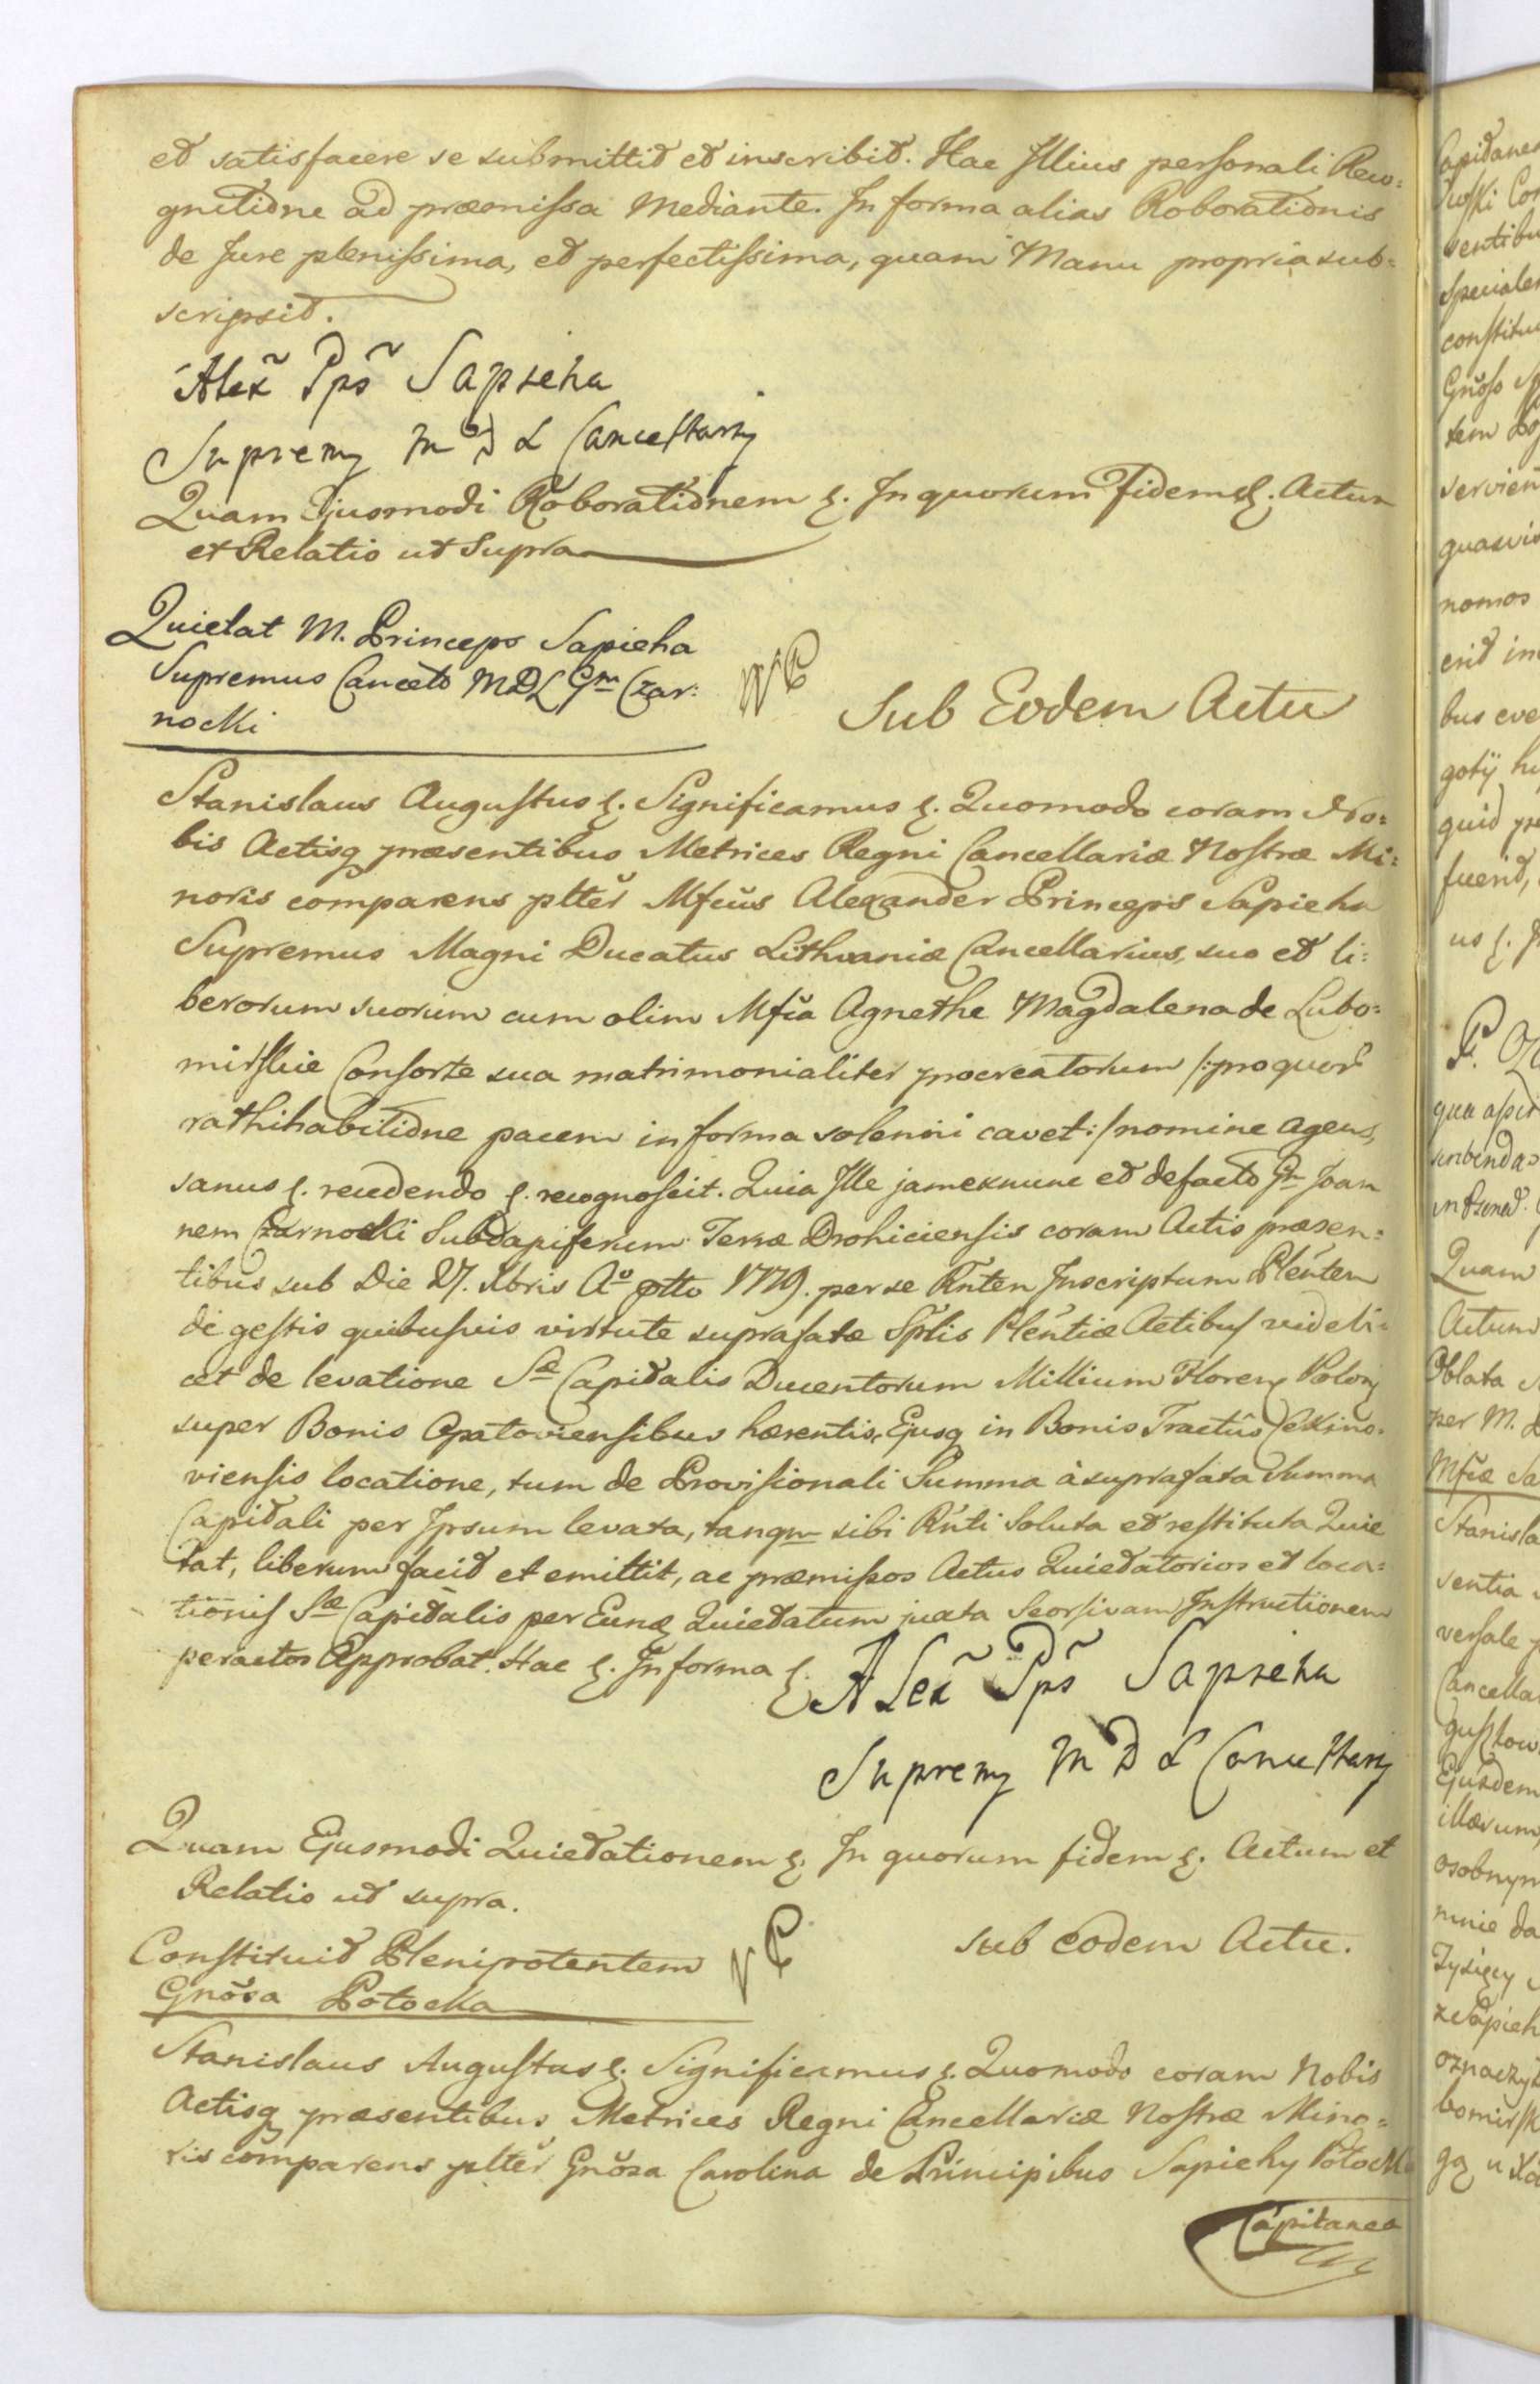 et satisfacere se submittit et inscribit. Hac Illius personali Reco=
gnitione ad præmissa Mediante. In forma alias Roborationis
de Jure plenissima, et perfectissima, quam Manu propria sub=
scripsit.
Alex̃ Pps̃ Sapieha
Supremy M D L Cancellarij
Quam Ejusmodi Roborationem &. In quorum Fidem &. Actum
et Relatio ut Supra
Quietat M. Princeps Sapieha
Supremus Cancel MDL Gm Czar:
nocki
Sub Eodem Actu
Stanislaus Augustus &. Significamus &. Quomodo coram No=
bis Actisq præsentibus Metrices Regni Cancellariæ Nostræ Mi=
noris comparens pltter Mfcus Alexander Princeps Sapieha
Supremus Magni Ducatus Lithvaniæ Cancellarius, suo et li=
berorum suorum cum olim Mfca Agnethe Magdalena de Lubo=
mirskie Consorte sua matrimonialiter procreatorum /: pro quor
rathihabitione pacem in forma solenni cavet :/ nomine agens,
sanus &. recedendo &. recognoscit. Quia Ille jam exnunc et defacto Gm Joan
nem Czarnocki Subdapiferum Terræ Drohiciensis coram Actis præsen=
tibus sub Die 27. Xbris Ao 1779. per se Rnten Inscriptum Plenten
de gestis quibusvis virtute suprafatæ Splis Plentiæ Actibus videli=
cet de levatione Sæ Capitalis Ducentorum Millium Floreny Polony
super Bonis Opatoviensibus hærentis, Ejusq in Bonis Tractûs Cekino=
viensis locatione, tum de Provisionali Summa à suprafata Summa
Capitali per Ipsum levata, tanqm sibi Rnti Soluta et restituta Quie
tat, liberum facit et emittit, ac præmissos Actus Quietatorios et loca=
tionis Sæ Capitalis per Eunq Quietatum juxta Seorsivam Instructionem
peractos Approbat. Hac &. In forma &.
Alex̃ Pps̃ Sapieha
Supremy M D L Cancellarij
Quam Ejusmodi Quietationem &. In quorum fidem &. Actum et
Relatio ut supra.
Constituit Plenipotentem
Gnosa Potocka
sub eodem Actu.
Stanislaus Augustus &. Significamus &. Quomodo coram Nobis
Actisq præsentibus Metrices Regni Cancellariæ Nostræ Mino=
ris comparens pltter Gnosa Carolina de Principibus Sapiehy Potocka
Capitanea